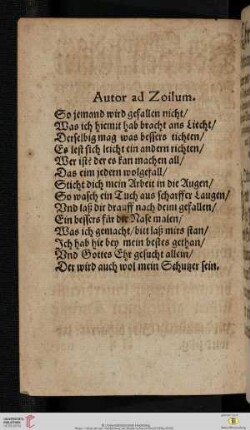 Autor ad Zoilum.
So jemand wird gefallen nicht/
Was ich hiemit hab bracht ans Liecht/
Derselbig mag was bessers tichten/
Es lest sich leicht ein andern richten/
Wer ist? der es kan machen all/
Das eim jedern wolgefall/
Sticht dich mein Arbeit in die Augen/
So wasch ein Tuch aus scharffer Laugen/
Vnd laß dir drauff nach deim gefallen/
Ein bessers für die Nase malen/
Was ich gemacht/ bitt laß mirs stan/
Ich hab hie bey mein bestes gethan/
Vnd Gottes Ehr gesucht allein/
Der wird auch wol mein Schutzer sein.